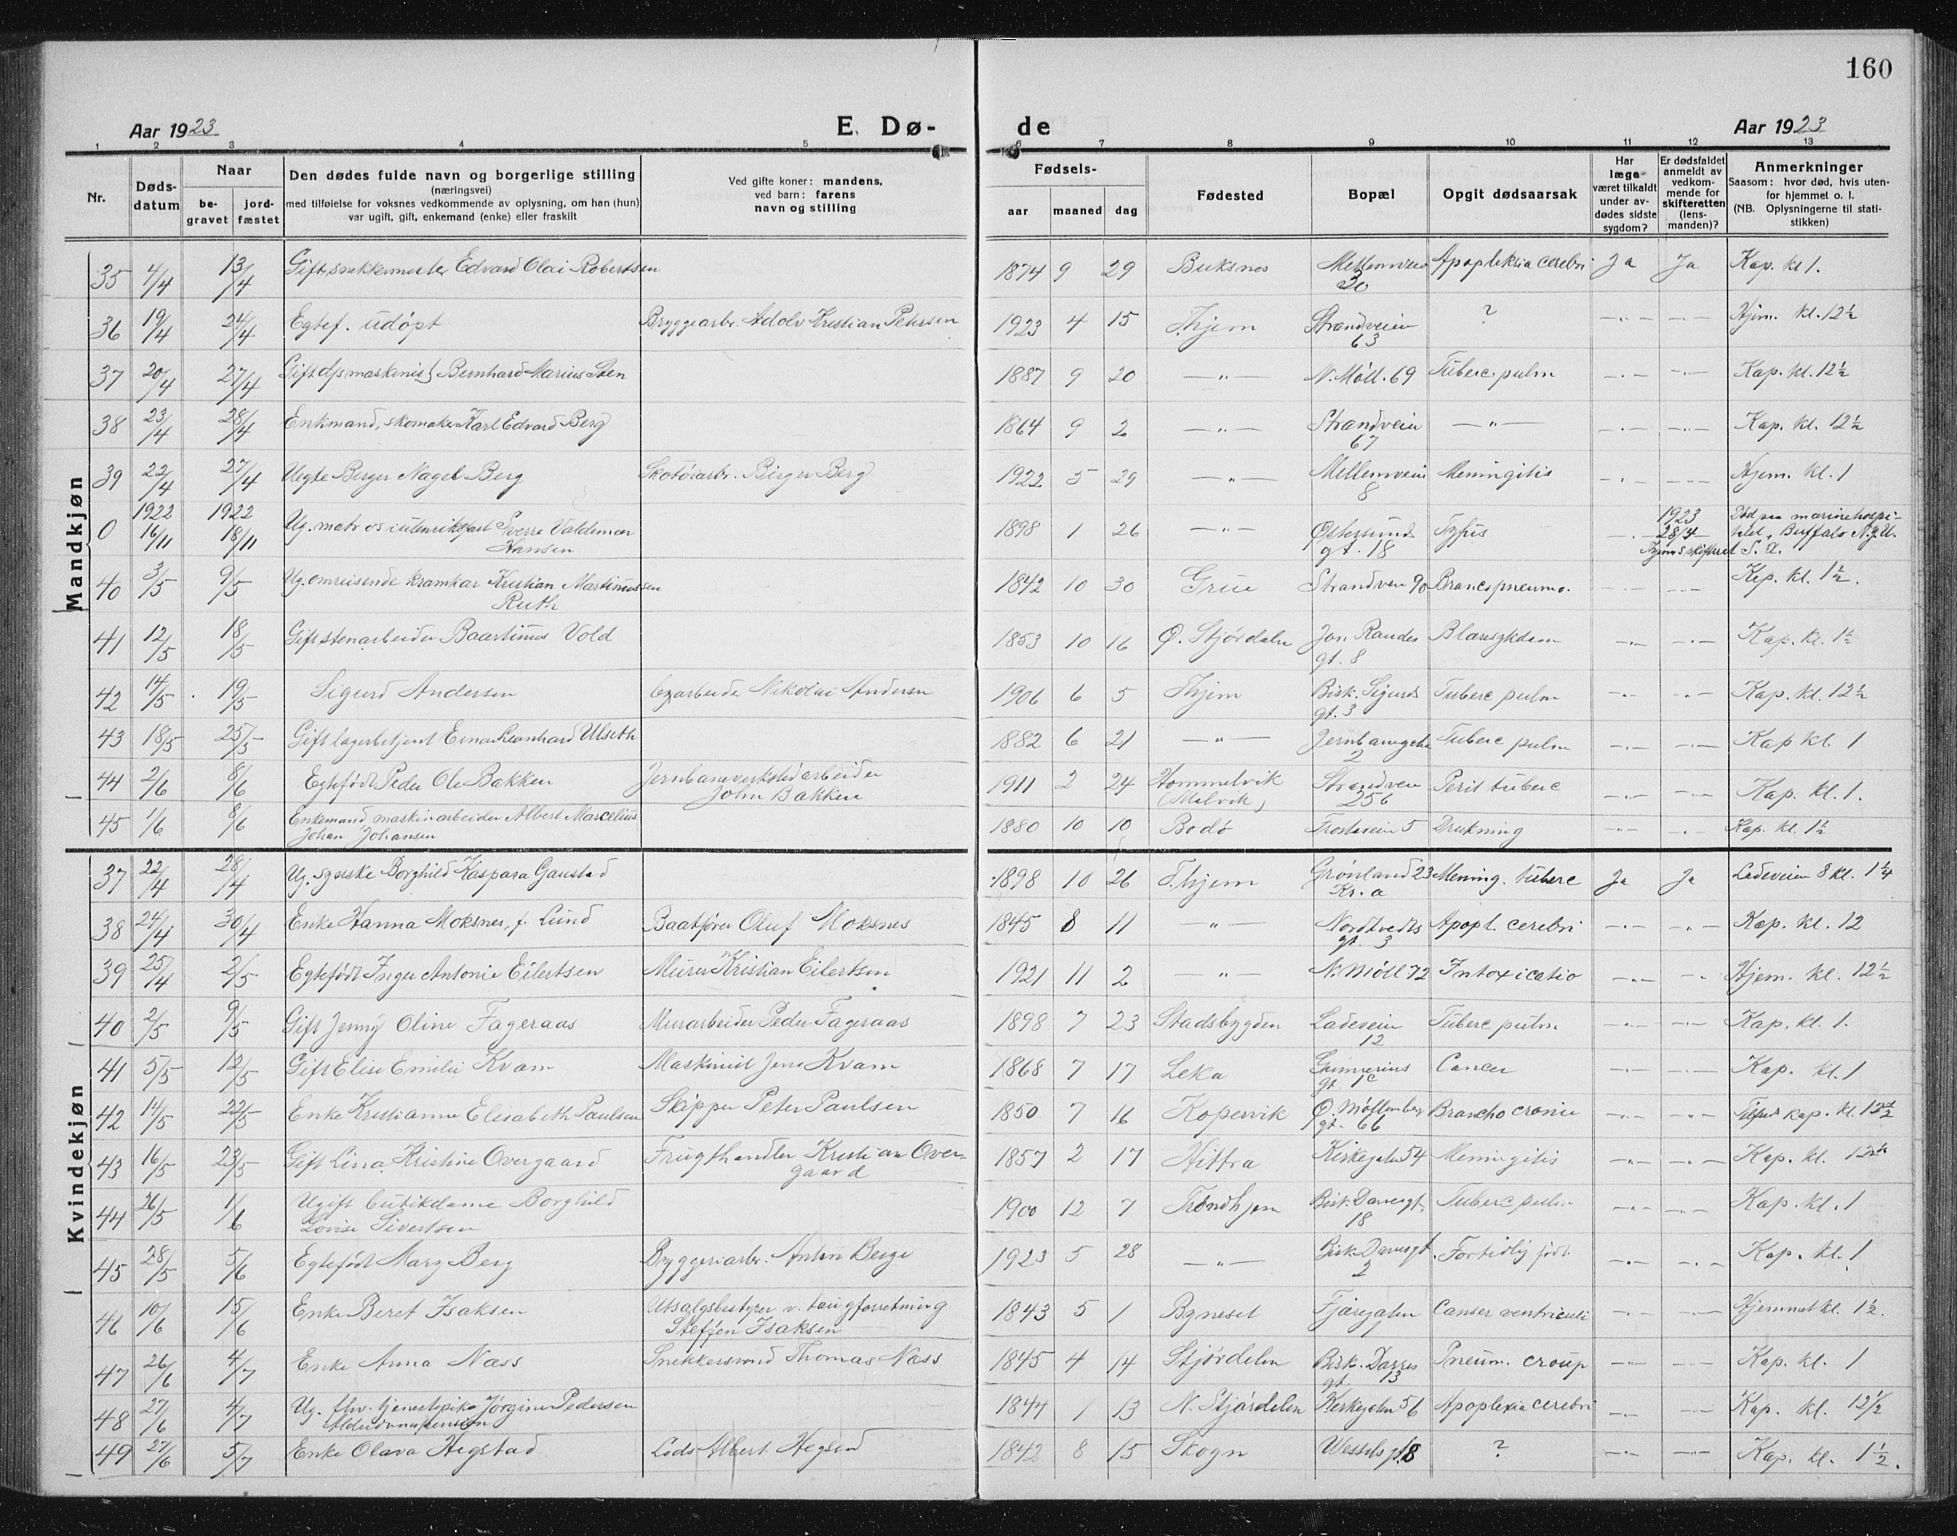 160
Aar 1923 E. Dø- de Aar 1923
1 2 3 4 5 6 7 8 9 10 11 12 13
Nr. Døds-datum Naar be-gravet jord-fæstet
Den dødes fulde navn og borgerlige stilling
(næringsvei)
med tilføielse for voksnes vedkommende av oplysning, om han (hun)
var ugift, gift, enkemand (enke) eller fraskilt
Ved gifte koner: mandens,
ved barn: farens
navn og stilling
Fødsels- aar maaned dag
Fødested
Bopæl
Opgit dødsaarsak
Har læge været tilkaldt under av-dødes sidste sygdom?
Er dødsfaldet anmeldt av vedkom-mende for skifteretten (lens-manden)?
Anmerkninger
Saasom: hvor død, hvis uten-
for hjemmet o. l.
(NB. Oplysningerne til stati-
stikken)
Mandkjøn
35 4/4 13/4 Gift, snekkermester Edvard Olai Robertsen 1874 9 29 Buksnes Mellemveien 20 Apopleksia cerebri Ja Ja Kap. kl 1.
36 19/4 24/4 Egtef. udøpt Bryggearb. Adolv Kristian Petersen 1923 4 15 T.hjem Strandveien 63 ? —"— —"— Hjem. kl. 12½
37 20/4 27/4 Gift d/s maskinist Bernhard Marius Steen 1887 9 20 —"— N. Møll. 69 Tuberc. pulm —"— —"— Kap. kl. 12½
38 23/4 28/4 Enkmand, skomaker Karl Edvard Berg 1864 9 2 —"— Strandveien 67 —"— —"— —"— Kap. kl. 12½
39 22/4 27/4 Uegte Berger Nagel Berg Skotøiarbr. Birger Berg 1922 5 29 —"— Mellemveien 8 Meningitis —"— —"— Hjem. kl. 1
0 1922 16/11 1922 18/11 Ug. matros i utenriksfart Sverre Valdemar Hansen 1898 1 26 —"— Østersunds gt. 18 Tyfus —"— 1923 28/4 Død paa marinehospitalet, Buffalo N.Y. U.S.A.
40 3/5 9/5 Ug. omreisende kramkar Kristian Martinussen Ruth 1842 10 30 Grue Strandveien 90 Broncopneumo. —"— —"— Kap. kl. 1½.
41 12/5 18/5 Gift stenarbeider Baartinus Vold 1853 10 16 Ø. Stjørdalen Jon Raudes gt. 8 Blæresykdom —"— —"— Kap. kl. 1½
42 14/5 19/5 Sigurd Andersen Nikolai Andersen 1906 6 5 T.hjem Bisk. Sigurds gt. 3 Tuberc pulm —"— —"— Kap. kl. 12½
43 18/5 25/5 Gift lagerbetjent Einar Leonhard Ulseth 1882 6 21 —"— Jernbanegaten 2 Tuberc pulm —"— —"— Kap kl. 1
44 2/6 8/6 Egtefødt Peder Ole Bakken Jernbaneverkstedarbeider John Bakken 1911 2 24 Hommelvik (Malvik) Strandveien 256 Perit tuberc —"— —"— Kap. kl. 1.
45 1/6 8/6 Enkemand maskinarbeider Albert Marcelius Johan Johansen 1880 10 10 Bodø Frostaveien 5 Drukning —"— —"— Kap. kl. 1½
Kvindekjøn
37 22/4 28/4 Ug. syerske Borghild Kaspara Gaustad 1898 10 26 T.hjem Grønland 23 Kr.a Mening. tuberc Ja Ja Ladeveien 8 kl. 1¼
38 24/4 30/4 Enke Hanna Moksnes, f. Lund Baatfører Oluf Moksnes 1845 8 11 —"— Nordtvedts gt. 3 Apopl. cerebri —"— —"— Kap. kl. 12
39 25/4 2/5 Egtefødt Inger Antonie Eilertsen Murer Kristian Eilertsen 1921 11 2 —"— N. Møll 72 Intoxicatio —"— —"— Hjem. kl. 12½
40 2/5 9/5 Gift Jenny Oline Fageraas Murarbeider Peder Fageraas 1898 7 23 Stadsbygden Ladeveien 12 Tuberc pulm —"— —"— Kap. kl. 1.
41 5/5 12/5 Gift Elise Emilie Kvam Maskinist Jens Kvam 1868 7 17 Leka Gunnerius gt 1c Cancer —"— —"— Kap. kl. 1
42 14/5 22/5 Enke Kristianne Elisabeth Paulsen Skipper Peter Paulsen 1850 7 16 Kopervik Ø. Møllenberg gt. 66 Broncho cronic —"— —"— kap. kl. 12½
43 16/5 23/5 Gift Lina Kristine Overgaard Frugthandler Kristian Overgaard 1857 2 17 Hittra Kirkegaten 54 Meningitis —"— —"— Kap. kl. 12½
44 26/5 1/6 Ugift butikdame Borghild Lovise Sivertsen 1900 12 7 Trondhjem Bisk. Daresgt. 18 Tuberc pulm —"— —"— Kap. kl. 1
45 28/5 5/6 Egtefødt Mary Berg Bryggeriarbr. Anton Berge 1923 5 28 —"— Bisk. Daresgt 2 For tidlig født —"— —"— Kap. kl. 1
46 10/6 15/6 Enke Beret Isaksen Utsalgsbestyrer v. taugforretning Steffen Isaksen 1843 5 1 Bynesset Fjæregaten Canser ventriculi —"— —"— Hjemmet kl. 1½.
47 26/6 4/7 Enke Anna Næss Snekkersvend Thomas Næss 1845 4 14 Stjørdalen Bisk. Dares gt. 13 Pneum. croup —"— —"— Kap. kl. 1
48 27/6 4/7 Ug. fhv. tjenestepike Jørgine Pedersen 1844 1 13 N. Stjørdalen Kirkegaten 56 Apoplexia cerebri —"— —"— Kap. kl. 12½
49 27/6 5/7 Enke Olava Hegstad Lods Albert Hegstad 1842 8 15 Skogn Wessels gt. 18 ? —"— —"— Kap. kl. 1½.